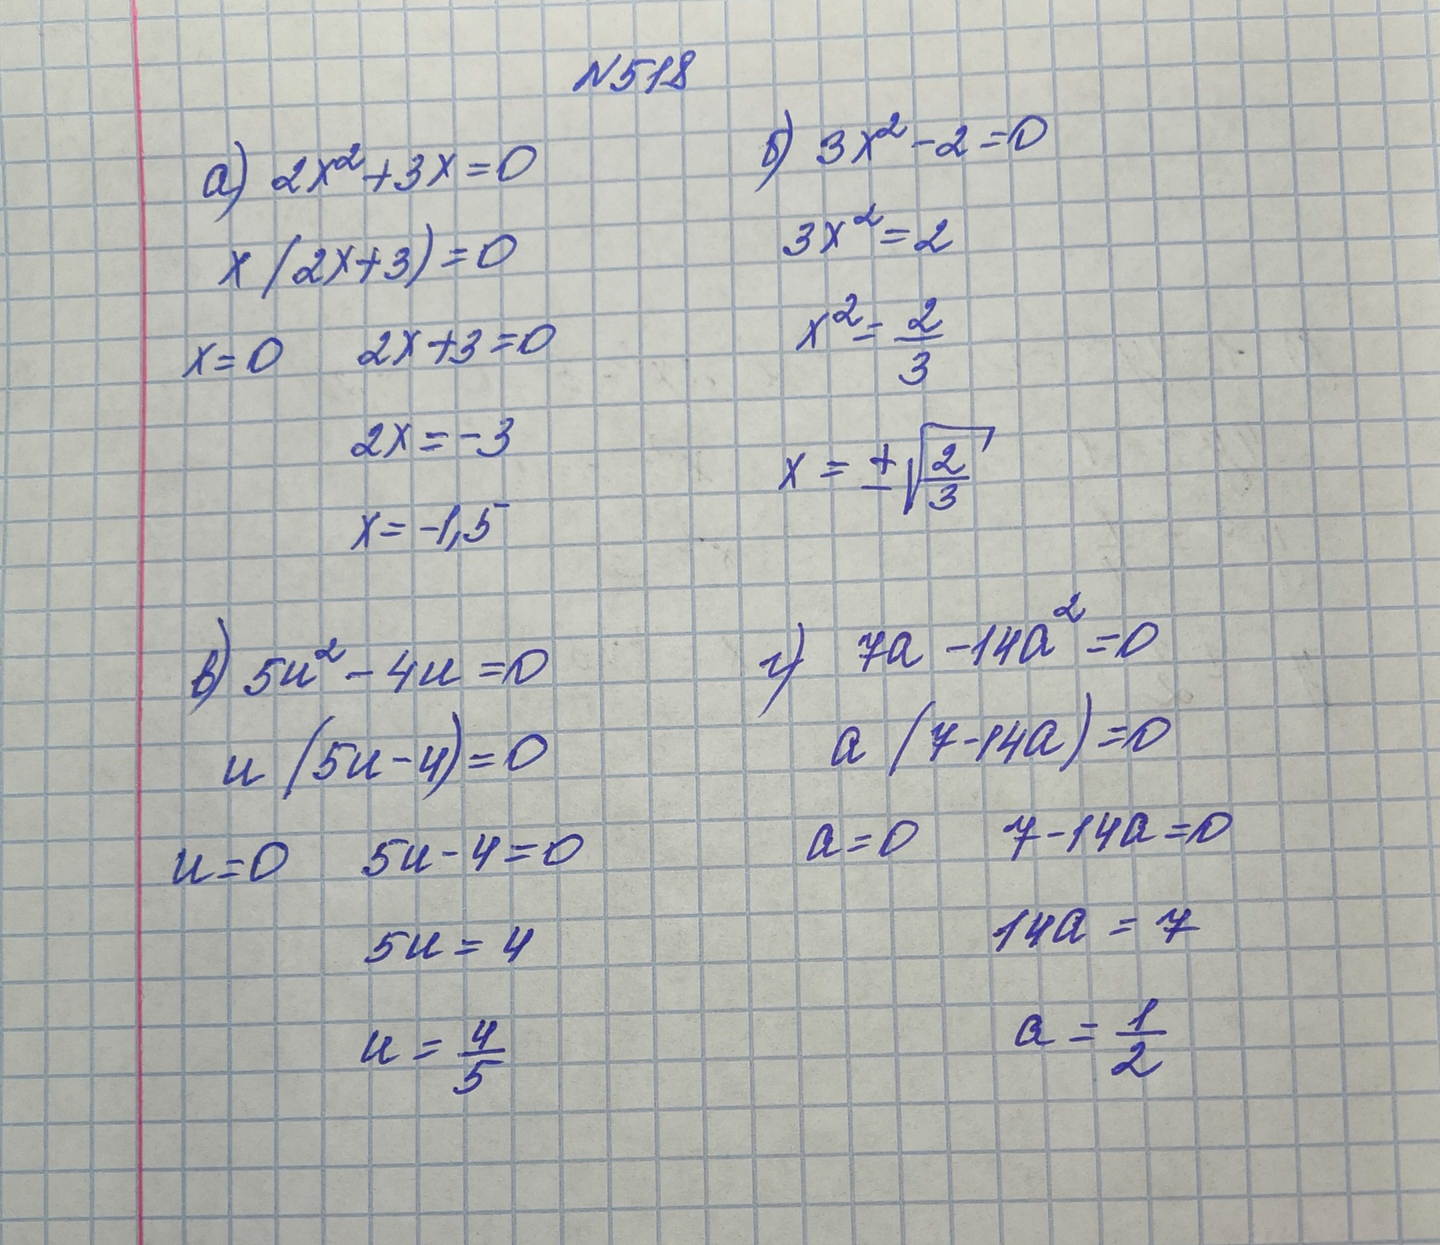 N518
а) 2x²+3x=0
x(2x+3)=0
x=0 2x+3=0
2x=-3
x=-1,5
б) 3x²-2=0
3x²=2
x²=2/3
x=±√(2/3)
в) 5u²-4u=0
u(5u-4)=0
u=0 5u-4=0
5u=4
u=4/5
г) 7a-14a²=0
a(7-14a)=0
a=0 7-14a=0
14a=7
a=1/2